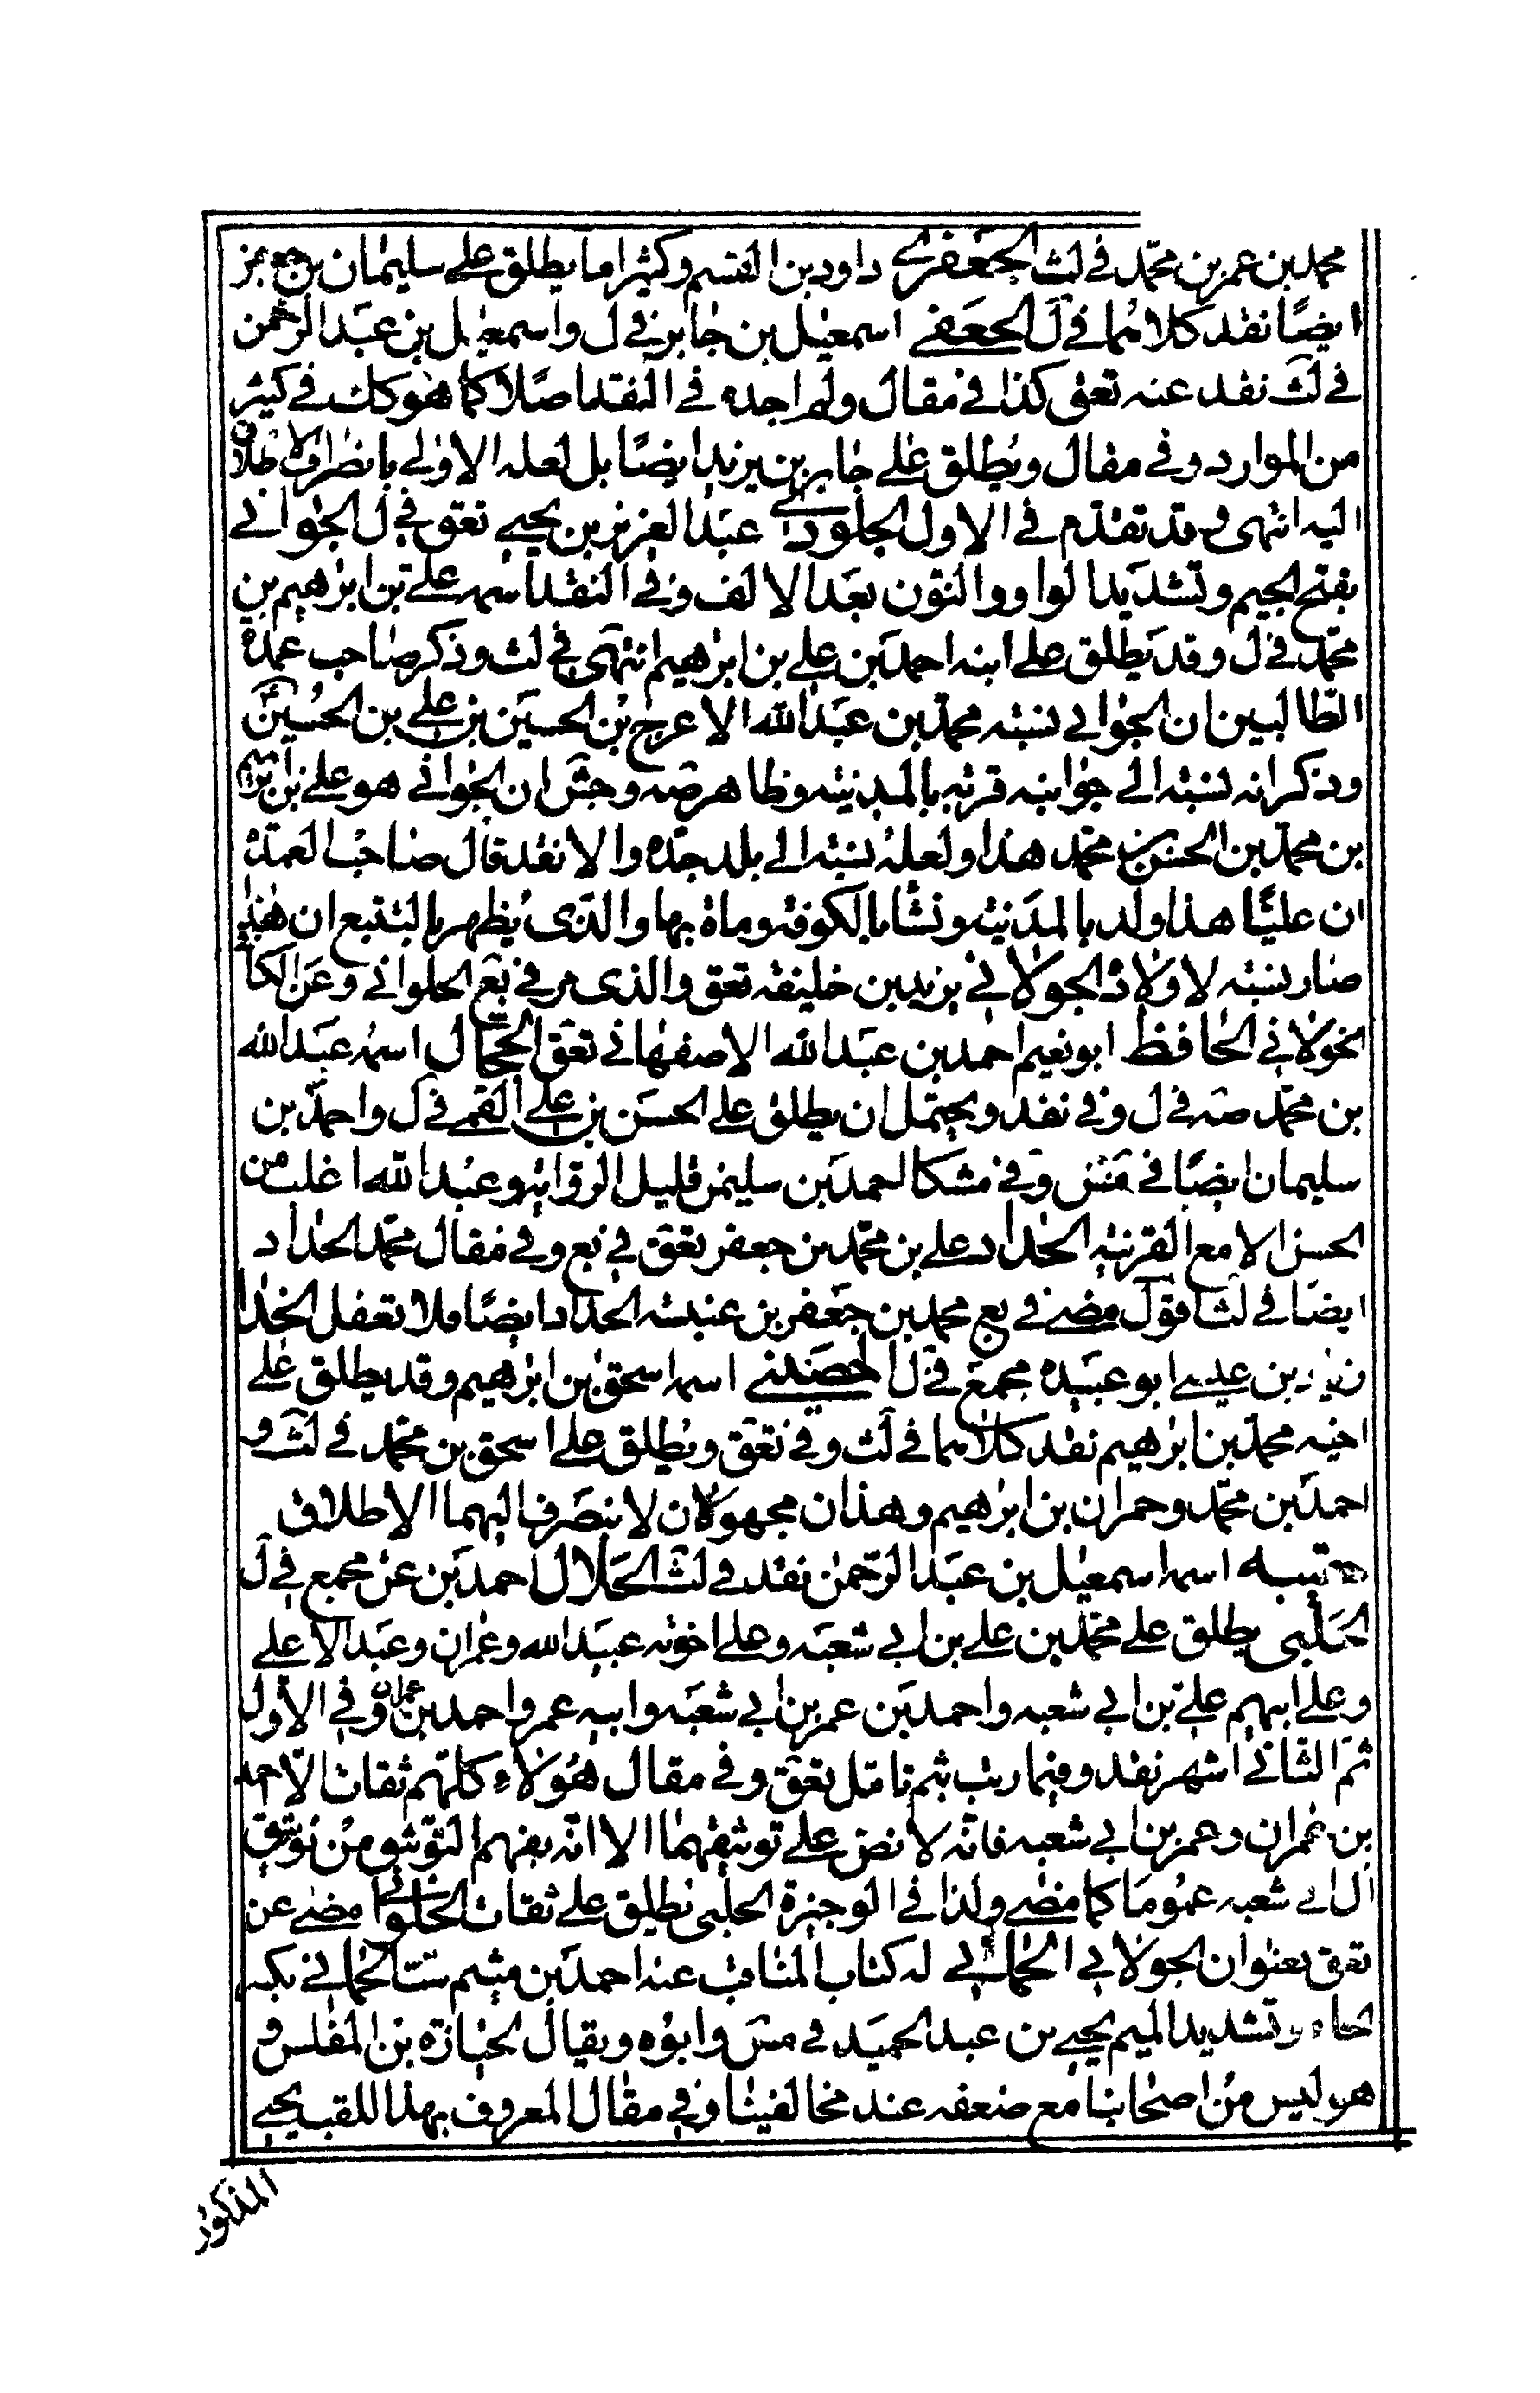 محمد بن عمر بن محمد في لث الجعفري داود بن القسم وكثيرا ما يطلق على سليمان بن جعفر
ايضا نقد كلاهما في ل الجعفي اسمعيل بن جابر في ل واسمعيل بن عبد الرحمن
في لث نقد عنه تعق كذا في مقال ولم اجده في النقد اصلا كما هو كك في كثير
من الموارد وفي مقال ويطلق على جابر بن يزيد ايضا بل لعله الاولى بانصراف الاطلاق
اليه انتهى وقد تقدم في الاول الجلودي عبد العزيز بن يحيى تعق في ل الجواني
بفتح الجيم وتشديد الواو والنون بعد الالف وفي النقد اسمه علي بن ابرهيم بن
محمد في ل وقد يطلق على ابنه احمد بن علي بن ابرهيم انتهى في لث وذكر صاحب عمدة
الطالبين ان الجواني نسبته محمد بن عبد الله الاعرج بن الحسين بن علي بن الحسين
وذكر انه نسبته الى جوانيه قريه بالمدينة وظاهر صه وجش ان الجواني هو علي بن ابرهيم
بن محمد بن الحسن بن محمد هذا ولعله نسبته الى بلد جده والا نقد قال صاحب العمدة
ان عليا هذا ولد بالمدينة ونشا بالكوفة وماة بها والذي يظهر بالتتبع ان هذا
صار نسبته لاولاده الجولاني يزيد بن خليفه تعق والذي مر في بع الحلواني وعن الكا
الخولاني الحافظ ابو نعيم احمد بن عبد الله الاصفهاني تعق الحجال اسمه عبد الله
بن محمد صه في ل وفي نقد ويحتمل ان يطلق على الحسن بن علي القمي في ل واحمد بن
سليمان ايضا في مش وفي مشكا احمد بن سليمن قليل الرواية وعبد الله اغلب من
الحسن الا مع القرينة الحداد علي بن محمد بن جعفر تعق في بع وفي مقال محمد الحداد
ايضا في لث اقول مضى في بع محمد بن جعفر بن عنبسه الحداد ايضا فلا تغفل الحذا
زياد بن عيسى ابو عبيده مجمع في ل الحصيني اسمه اسحق بن ابرهيم وقد يطلق على
اخيه محمد بن ابرهيم نقد كلاهما في لث وفي تعق ويطلق على اسحق بن محمد في لث و
احمد بن محمد وحمران بن ابرهيم وهذان مجهولان لا ينصرف اليهما الاطلاق
اسمه اسمعيل بن عبد الرحمن نقد في لث الحلال احمد بن عمر مجمع في ل
الحلبي يطلق على محمد بن علي بن ابي شعبه وعلى اخوته عبيد الله وعمران وعبد الاعلى
وعلى ابيهم علي بن ابي شعبه واحمد بن عمر بن ابي شعبه وابيه عمر واحمد بن عمران وفي الاول
ثم الثاني اشهر نقد وفيما ريب بثم تامل تعق وفي مقال هؤلاء كلهم ثقات الا احمد
بن عمران وعمر بن ابي شعبه فانه لا نص على توثيقهما الا انه يفهم التوثيق من توثيق
آل ابي شعبه عموما كما مضى ولذا في الوجيزة الحلبي يطلق على ثقات الحلواني مضى عن
تعق بعنوان الجولاني الحماني له كتاب المناقب عنه احمد بن ميثم ست الحماني بكسر
الحاء وتشديد الميم يحيى بن عبد الحميد في مش وابوه ويقال لجبارة بن المغلس و
هو ليس من اصحابنا مع ضعفه عند مخالفينا وفي مقال المعروف بهذا اللقب يحيى
المذكور